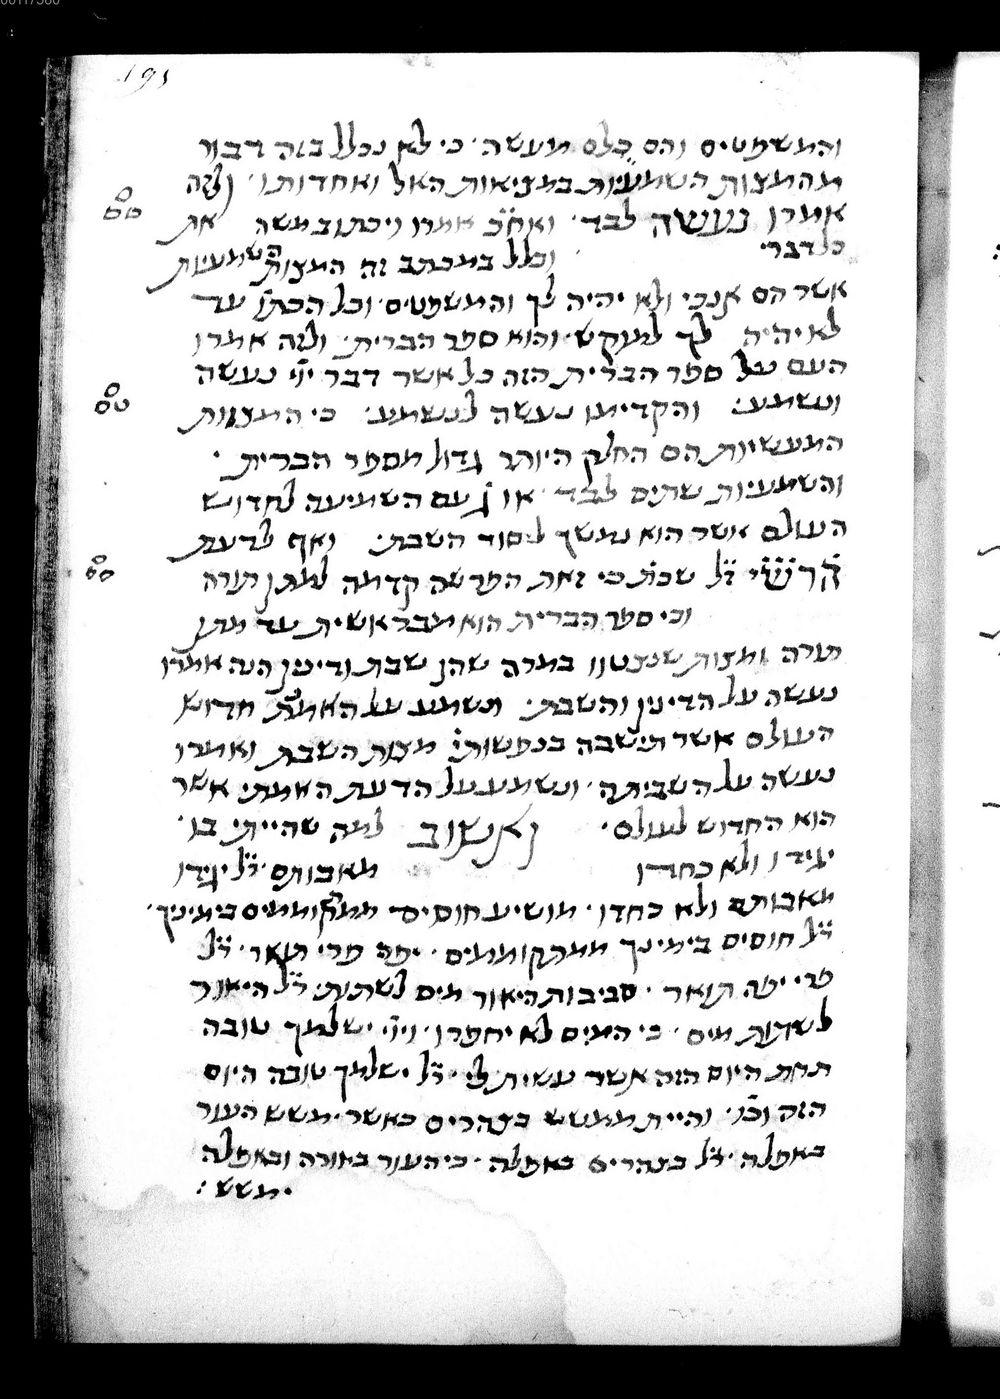 191
והמשפטים והם כלם מעשה · כי לא נכלל בזה דבור
מהמצות השמעיות במציאות האל ואחדותו · ולזה
אמרו נעשה לבד · ואח״כ אמרו ויכתוב משה את
כל דברי · וכלל במכתב זה המצות השמעיות
אשר הם אנכי ולא יהיה לך והמשפטים · וכל הכתו׳ עד
לא יהיה לך למוקש · והוא ספר הברית · ולזה אמרו
העם על ספר הברית הזה כל אשר דבר ייי נעשה
ונשמע : והקדימו נעשה לנשמע · כי המצוות
המעשיות הם החלק היותר גדול מספר הברית ·
והשמעיות שתים לבד · או ג׳ עם השמיעה לחדוש
העולם אשר הוא נמשך ליסוד השבת : ואף לדעת
הרש״י ז״ל שכת׳ כי זאת הפרשה קדמה למתן תורה
וכי ספר הברית הוא מבראשית עד מתן
תורה ומצות שנצטוו במרה שהן שבת ודינין הנה אמרו
נעשה על הדינין והשבת : ונשמע על האמת חדוש
העולם אשר תישבה בנפשותי׳ מצות השבת ואמרו
נעשה על השביתה · ונשמע על הדעת האמתי אשר
הוא החדוש לעולם · ואשוב למה שהייתי בו ·
יגידו ולא כחדו מאבותם · ר״ל יגידו
מאבותם ולא כחדו · מושיע חוסים ממתקוממים בימינך ·
ר״ל חוסים בימינך ממתקוממים · יפה פרי תואר · ר״ל
פרי יפה תואר · סביבות היאור מים לשתות · ר״ל היאור
לשתות מים · כי המים לא יחפרו · וייי ישלמך טובה
תחת היום הזה אשר עשית לי · ר״ל ישלמך טובה היום
הזה וכו׳ · והיית ממשש בצהרים כאשר ימשש העור
באפלה · ר״ל בצהרים באפלה · כי העור באורה ובאפלה
ימשש :